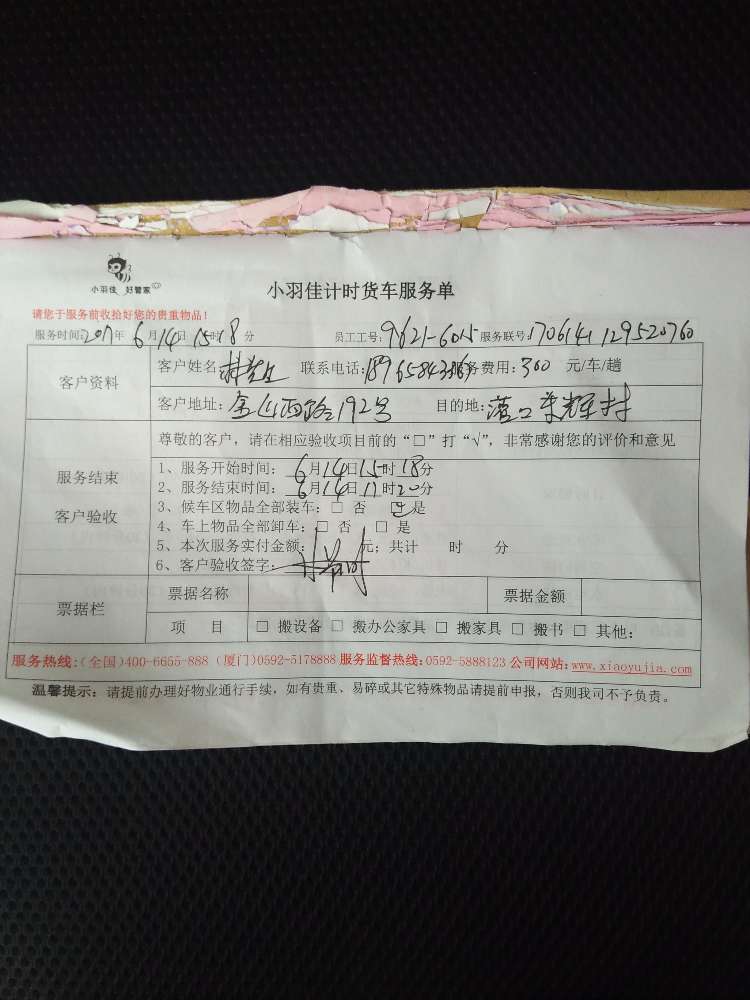 小羽佳 好管家
小羽佳计时货车服务单
请您于服务前收拾好您的贵重物品！
服务时间：2017年6月14日15时18分 员工工号：9621-6015 服务联号：1706141129520760
客户资料
客户姓名：林先生 联系电话： 服务费用：300 元/车/趟
客户地址：金山西路192号 目的地：
尊敬的客户，请在相应验收项目前的“□”打“√”，非常感谢您的评价和意见
服务结束
客户验收
1、服务开始时间：6月14日15时18分
2、服务结束时间：6月14日17时20分
3、候车区物品全部装车：□ 否 ☑是
4、车上物品全部卸车：□ 否 □ 是
5、本次服务实付金额： 元；共计 时 分
6、客户验收签字：
票据栏
票据名称 票据金额
项 目 □ 搬设备 □ 搬办公家具 □ 搬家具 □ 搬书 □ 其他：
服务热线：(全国)400-6655-888 (厦门)0592-5178888 服务监督热线：0592-5888123 公司网站：www.xiaoyujia.com
温馨提示：请提前办理好物业通行手续，如有贵重、易碎或其它特殊物品请提前申报，否则我司不予负责。